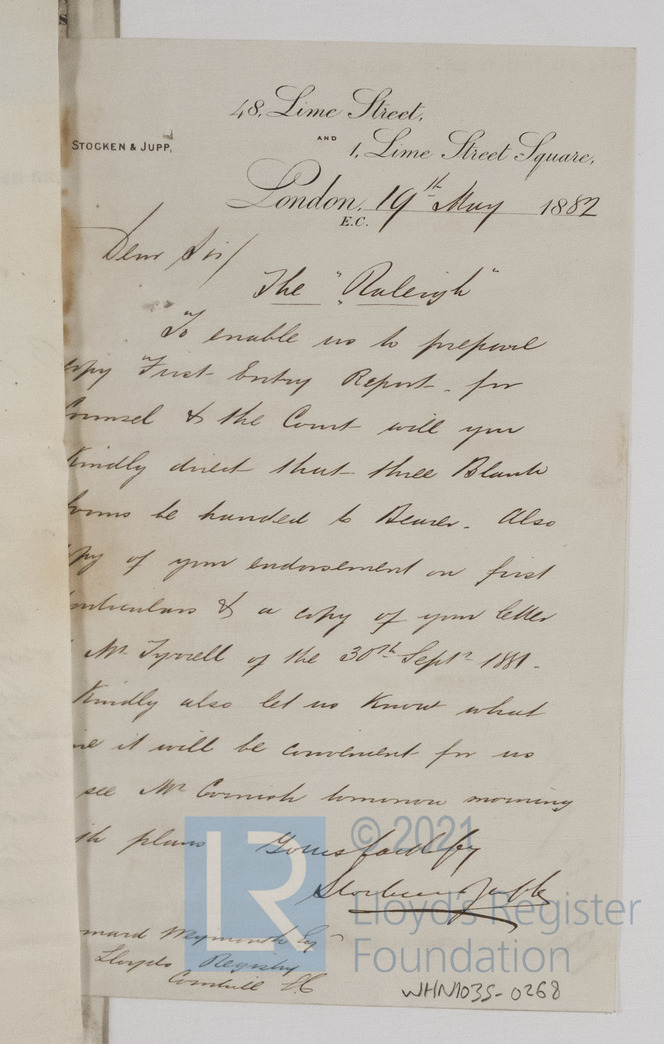 48, Lime Street,
AND
STOCKEN & JUPP,
1, Lime Street Square,
London, 19th May 1882
E.C.
Dear Sir/
The "Raleigh"
To enable us to prepare
opy First Entry Report - for
Counsel & the Court will you
Kindly direct that three Blank
forms be handed to Bearer. Also
opy of your endorsement on first
articulars & a copy of your letter
Mr Tyrrell of the 30th Septr 1881.
Kindly also let us know what
me it will be convenient for us
see Mr Cornish tomorrow morning
ith plans
Yours faithfully
Stocken & Jupp
rnard Waymouth Esq
Lloyds Registry
Cornhill E.C
WHN1035-0268
© 2021
LR
Lloyd's Register
Foundation